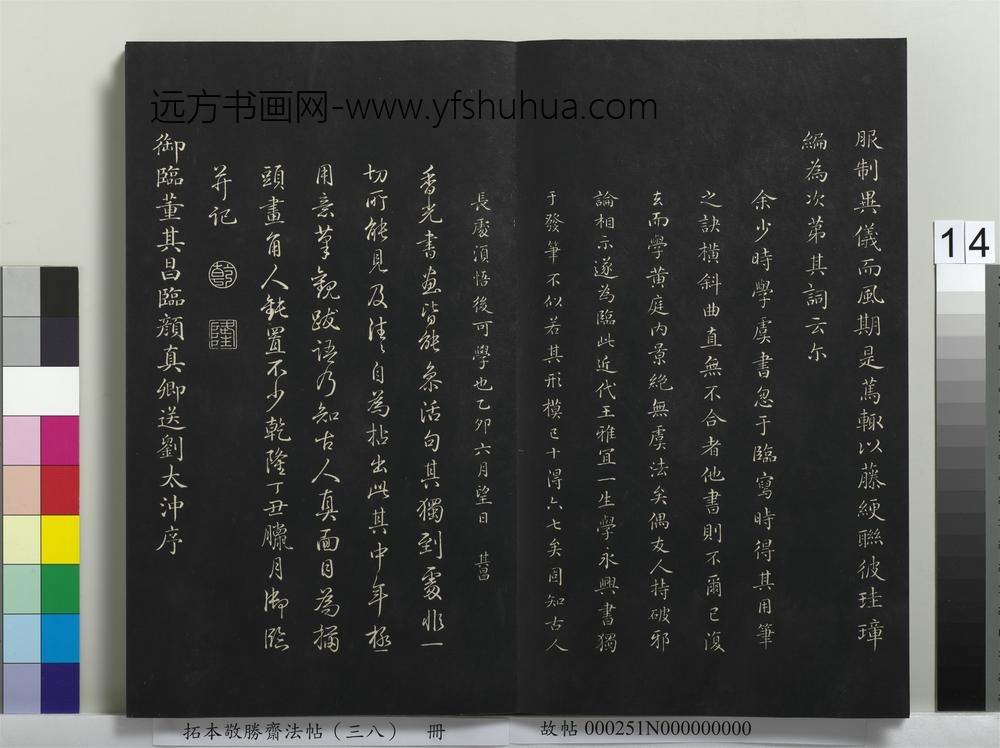 远方书画网-www.yfshuhua.com
服制異儀而風期是篤輙以藤綆聯彼珪璋
編為次第其詞云尓
余少時學虞書忽于臨寫時得其用筆
之訣橫斜曲直無不合者他書則不爾已復
去而學黄庭内景絶無虞法矣偶友人持破邪
論相示遂為臨此近代王雅宜一生學永興書獨
于發筆不似若其形模已十得六七矣固知古人
長處須悟後可學也乙卯六月望日 其昌
香光書画皆能叅活句其獨到處非一
切所能見及往々自為拈出此其中年極
用意筆觀跋語乃知古人真面目為描
頭畫角人鈍置不少乾隆丁丑臘月御臨
并記
乾
隆
御臨董其昌臨顔真卿送劉太沖序
14
拓本敬勝齋法帖（三八） 冊
故帖 000251N000000000